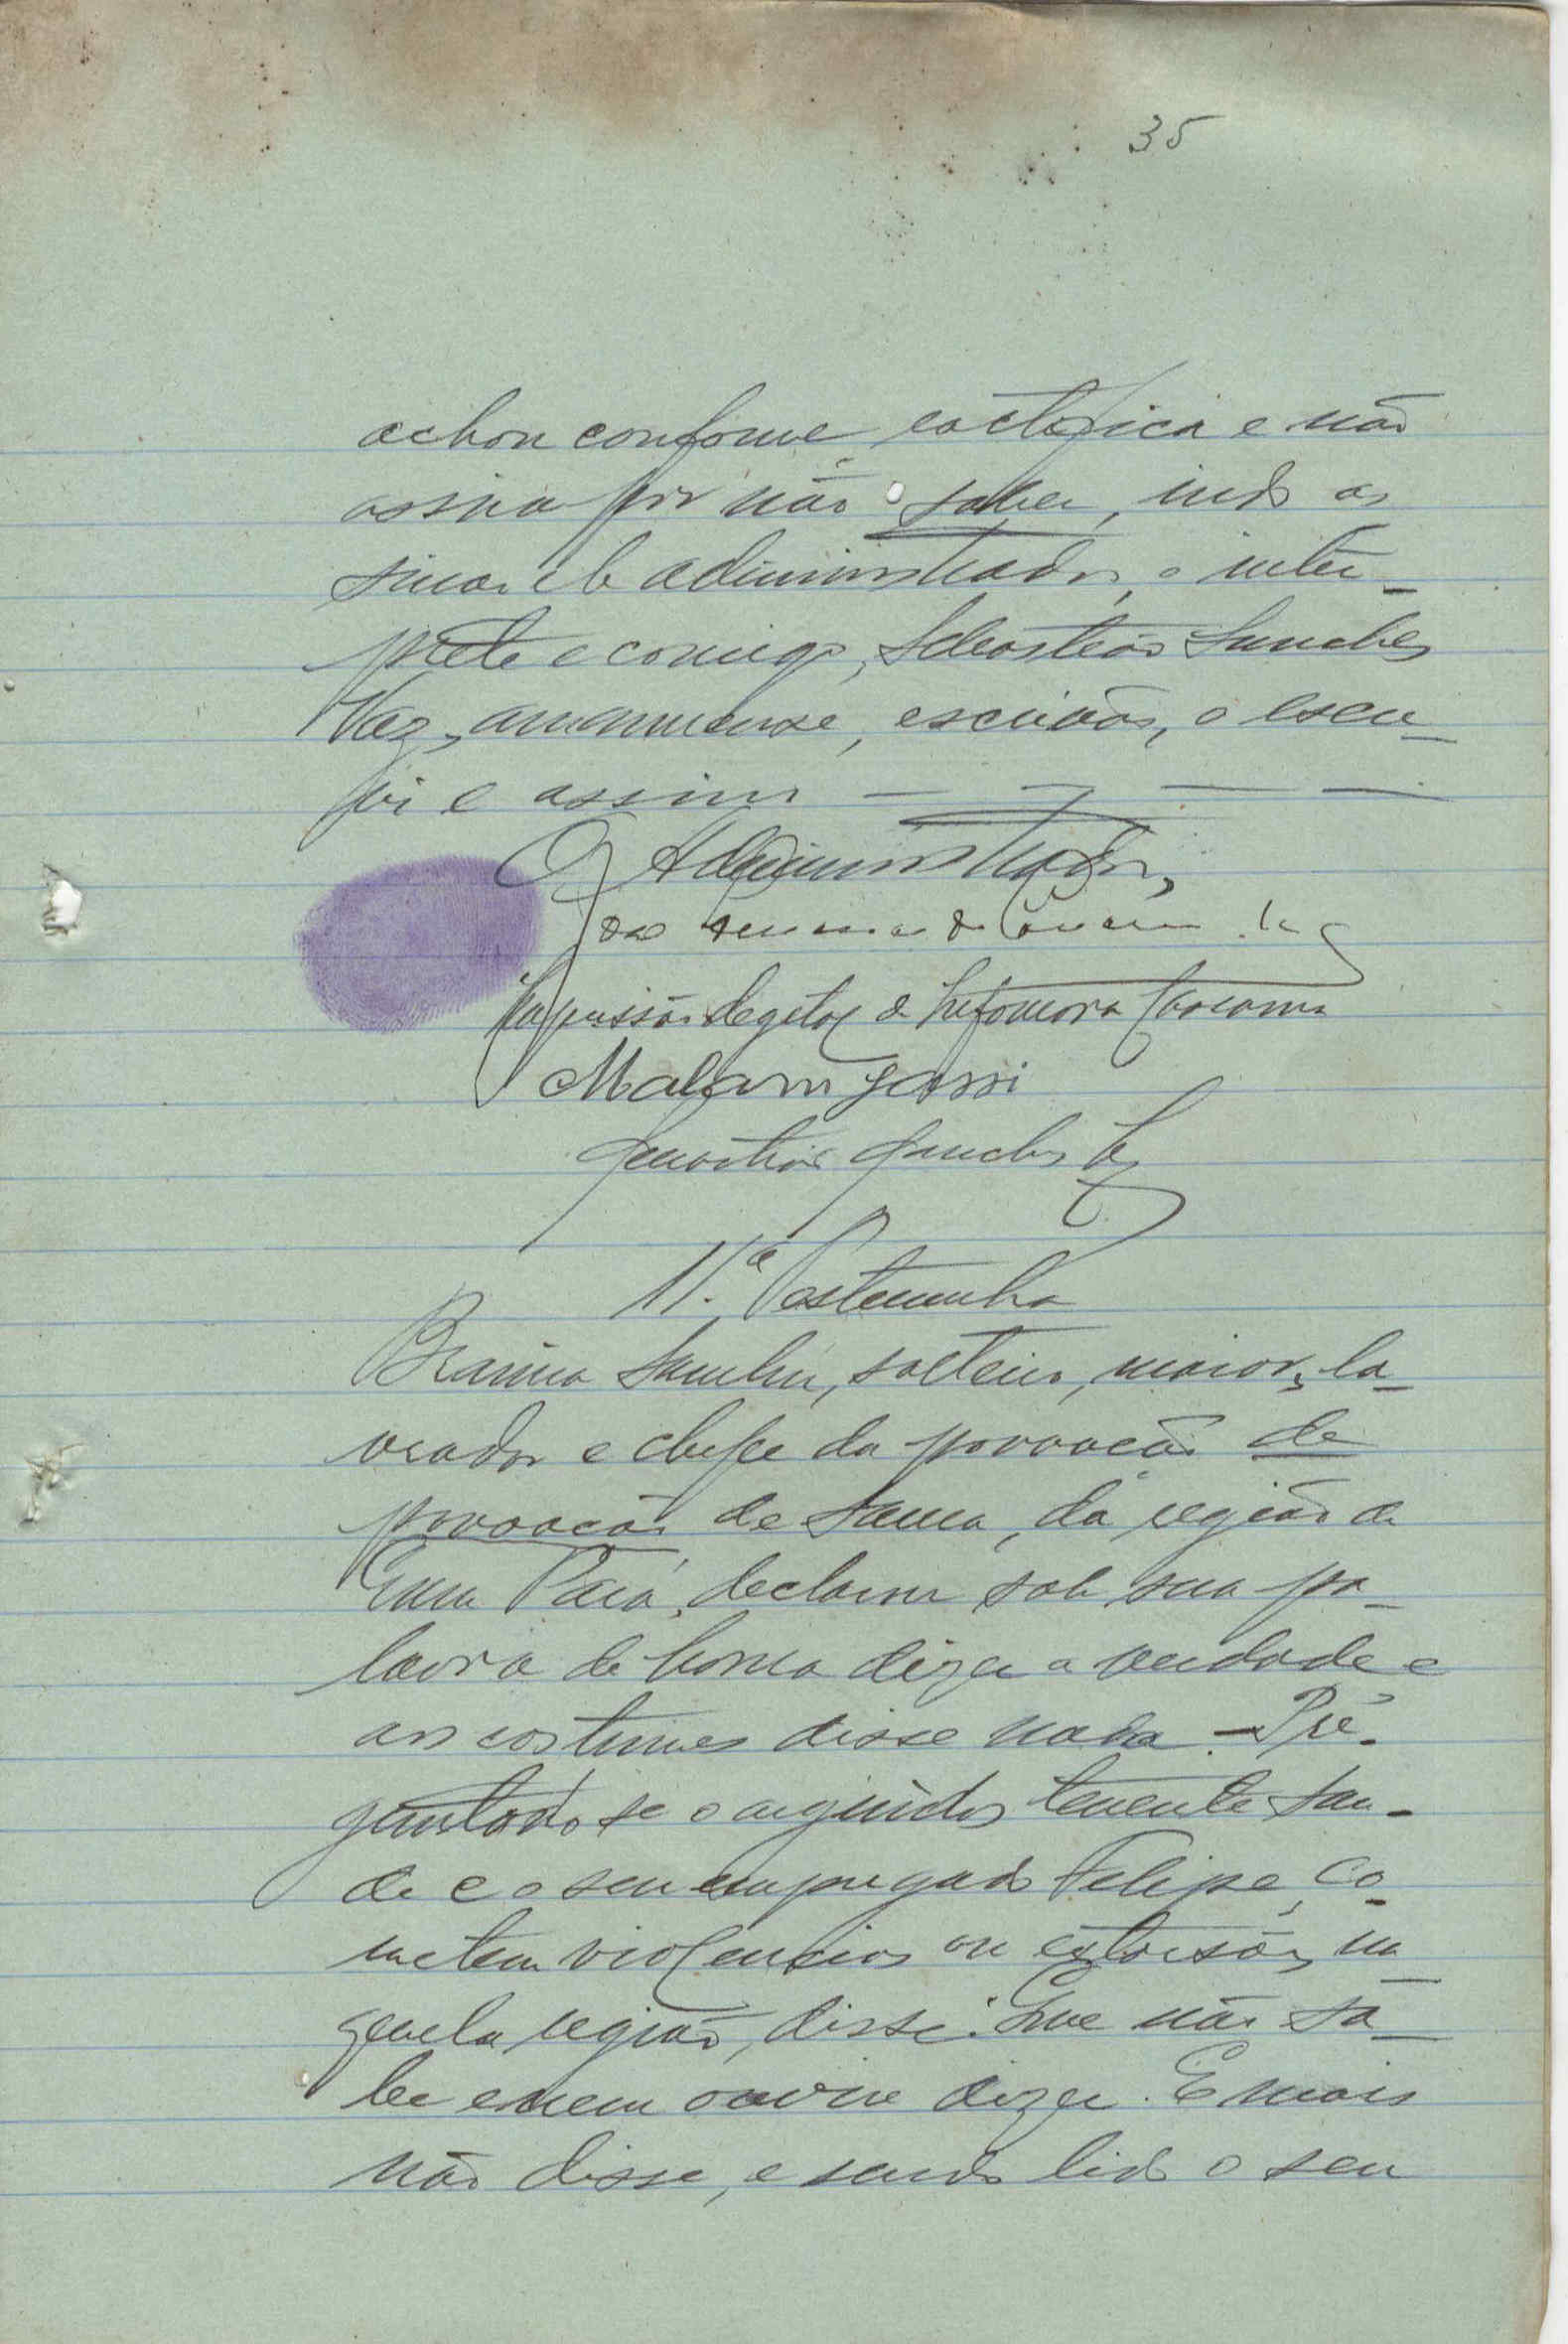 35
achou conforme, ractifica e não
assina por não saber, indo as
sinar ele administrador, o inter-
prete e comigo, Sebastião Sanches
Vaz, amanuense, escrivão, o escre-
vi e assino — — — —
O Administrador,
Impressão degital de
Malam Jassi
Sebastião Sanches Vaz
11.ª Testemunha
solteiro, maior, la-
vrador e chefe da povoação de
povoação de da região de
declarou sob sua pa-
lavra de honra dizer a verdade e
aos costumes disse nada. — Pre-
guntado se o arguidos tenente San-
de e o seu empregado Felipe, co-
metem violencias ou extorsões, na
quela região, disse: Que não sa-
be e nem ouvira dizer. E mais
não disse, e sendo lido o seu